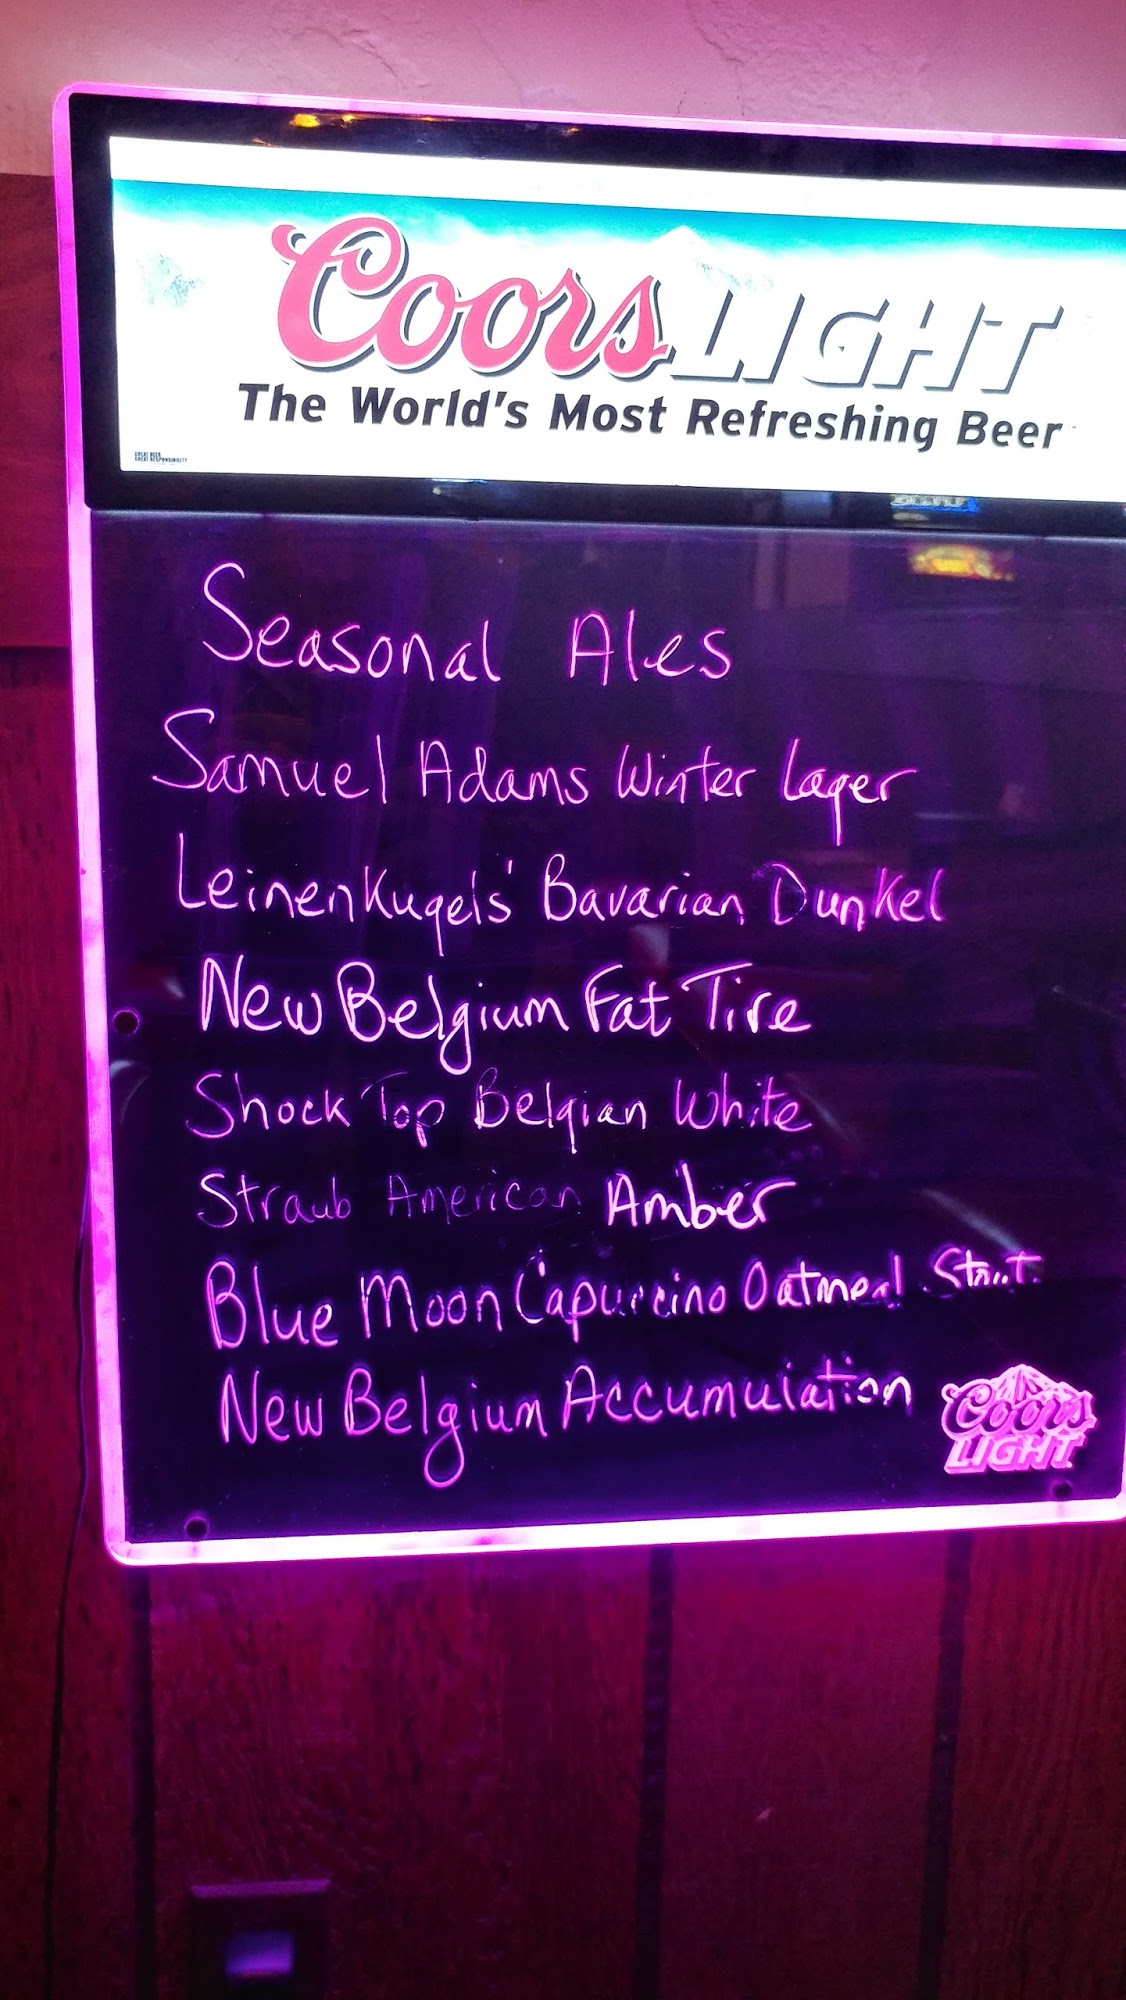 Coors LIGHT
The World's Most Refreshing Beer
Seasonal Ales
Samuel Adams Winter Lager
Leinenkugels' Bavarian Dunkel
New Belgium Fat Tire
Shock Top Belgian White
Straub American Amber
Blue Moon Capuccino Oatmeal Stout
New Belgium Accumulation
Coors
LIGHT